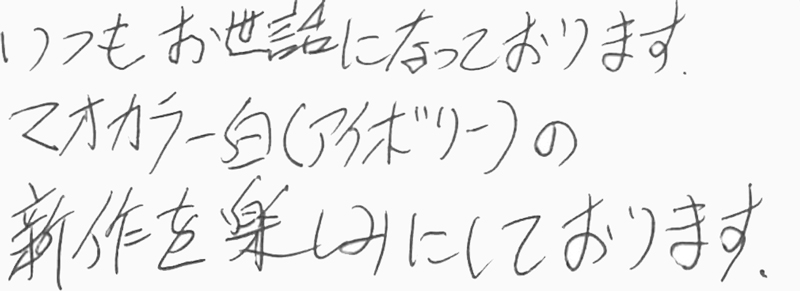 いつもお世話になっております.
マオカラー白(アイボリー)の
新作を楽しみにしております.